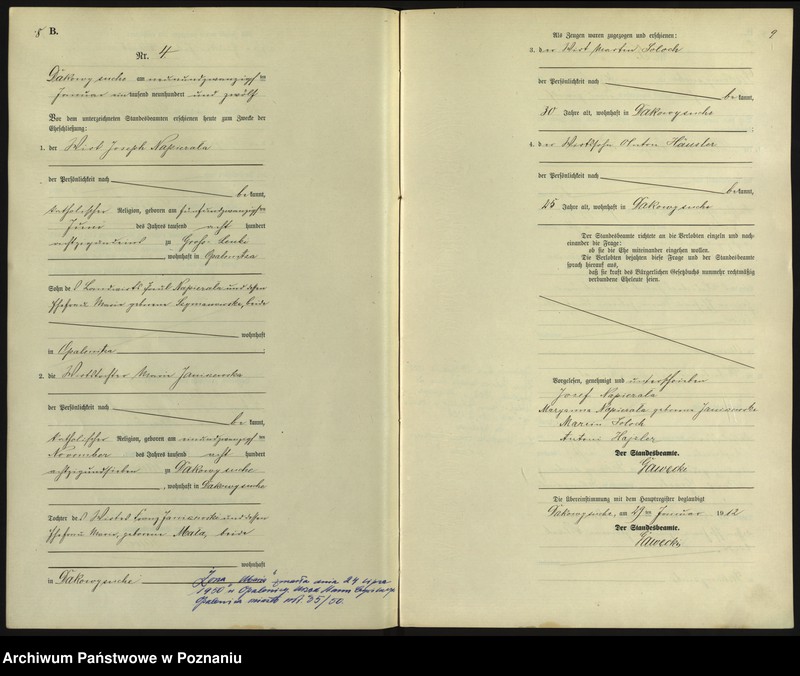 8 B.
Nr. 4.
Dakowy suche am neunundzwanzigsten
Januar eintausend neunhundert und zwölf
Vor dem unterzeichneten Standesbeamten erschienen heute zum Zwecke der
Eheschließung:
1. der Wirt Joseph Napierala
der Persönlichkeit nach
be kannt,
katholischer Religion, geboren am fünfundzwanzigsten
Juni des Jahres tausend acht hundert
zu Groß-Lenke
, wohnhaft in Opalenitza
Sohn des Landwirts Napierala und dessen
Ehefrau Marie geborene beide
wohnhaft
in Opalenitza
2. die Wirtstochter Marie
der Persönlichkeit nach
be kannt,
katholischer Religion, geboren am einundzwanzigsten
November des Jahres tausend acht hundert
achtzigundsieben zu Dakowy suche
, wohnhaft in Dakowy suche
Tochter des Wirtes Franz und dessen
Ehefrau Marie, geborene Mała, beide
wohnhaft
in Dakowy suche
Żona "Maria" zmarła dnia 24 lipca
1950 w Opalenicy, Urząd Stanu Cywilnego
Opalenica miasto nr. 35/50.
9
Als Zeugen waren zugezogen und erschienen:
3. der Wirt Martin Soloch
der Persönlichkeit nach
be kannt,
30 Jahre alt, wohnhaft in Dakowy suche
;
4. der Wirtssohn Anton Häusler
der Persönlichkeit nach
be kannt,
25 Jahre alt, wohnhaft in Dakowy suche
Der Standesbeamte richtete an die Verlobten einzeln und nach-
einander die Frage:
ob sie die Ehe miteinander eingehen wollen.
Die Verlobten bejahten diese Frage und der Standesbeamte
sprach hierauf aus,
daß sie kraft des Bürgerlichen Gesetzbuchs nunmehr rechtmäßig
verbundene Eheleute seien.
Vorgelesen, genehmigt und unterschrieben
Jozef Napierala
Maryanna Napierala geborene
Marcin Soloch
Antoni Hajzler
Der Standesbeamte.
Gawecki
Die Übereinstimmung mit dem Hauptregister beglaubigt
Dakowy suche, am 29ten Januar 1912
Der Standesbeamte.
Gawecki
Archiwum Państwowe w Poznaniu